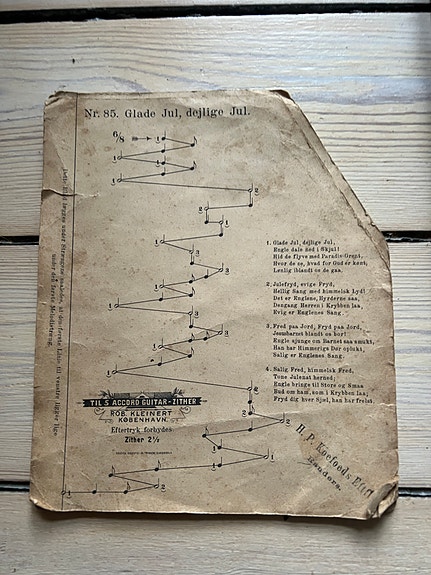 Nr. 85. Glade Jul, dejlige Jul.
6/8
1. Glade Jul, dejlige Jul,
Engle dale ned i Skjul!
Hid de flyve med Paradis-Grønt,
Hvor de se, hvad for Gud er kønt,
Lønlig iblandt os de gaa.
2. Julefryd, evige Fryd,
Hellig Sang med himmelsk Lyd!
Det er Englene, Hyrderne saa,
Dengang Herren i Krybben laa,
Evig er Englenes Sang.
3. Fred paa Jord, Fryd paa Jord,
Jesubarnet blandt os bor!
Engle sjunge om Barnet saa smukt,
Han har Himmerigs Dør oplukt,
Salig er Englenes Sang.
4. Salig Fred, himmelsk Fred,
Tone Julenat herned;
Engle bringe til Store og Smaa
Bud om ham, som i Krybben laa;
Fryd dig hver Sjæl, han har frelst.
TIL 5 ACCORD GUITAR-ZITHER
ROB. KLEINERT
KØBENHAVN.
Eftertryk forbydes.
Zither 2½
H. P. Koefoeds Eftf.
Randers.
Dette Blad lægges under Strængene saaledes, at den første Linie til venstre ligger lige
under den første Melodistræng.